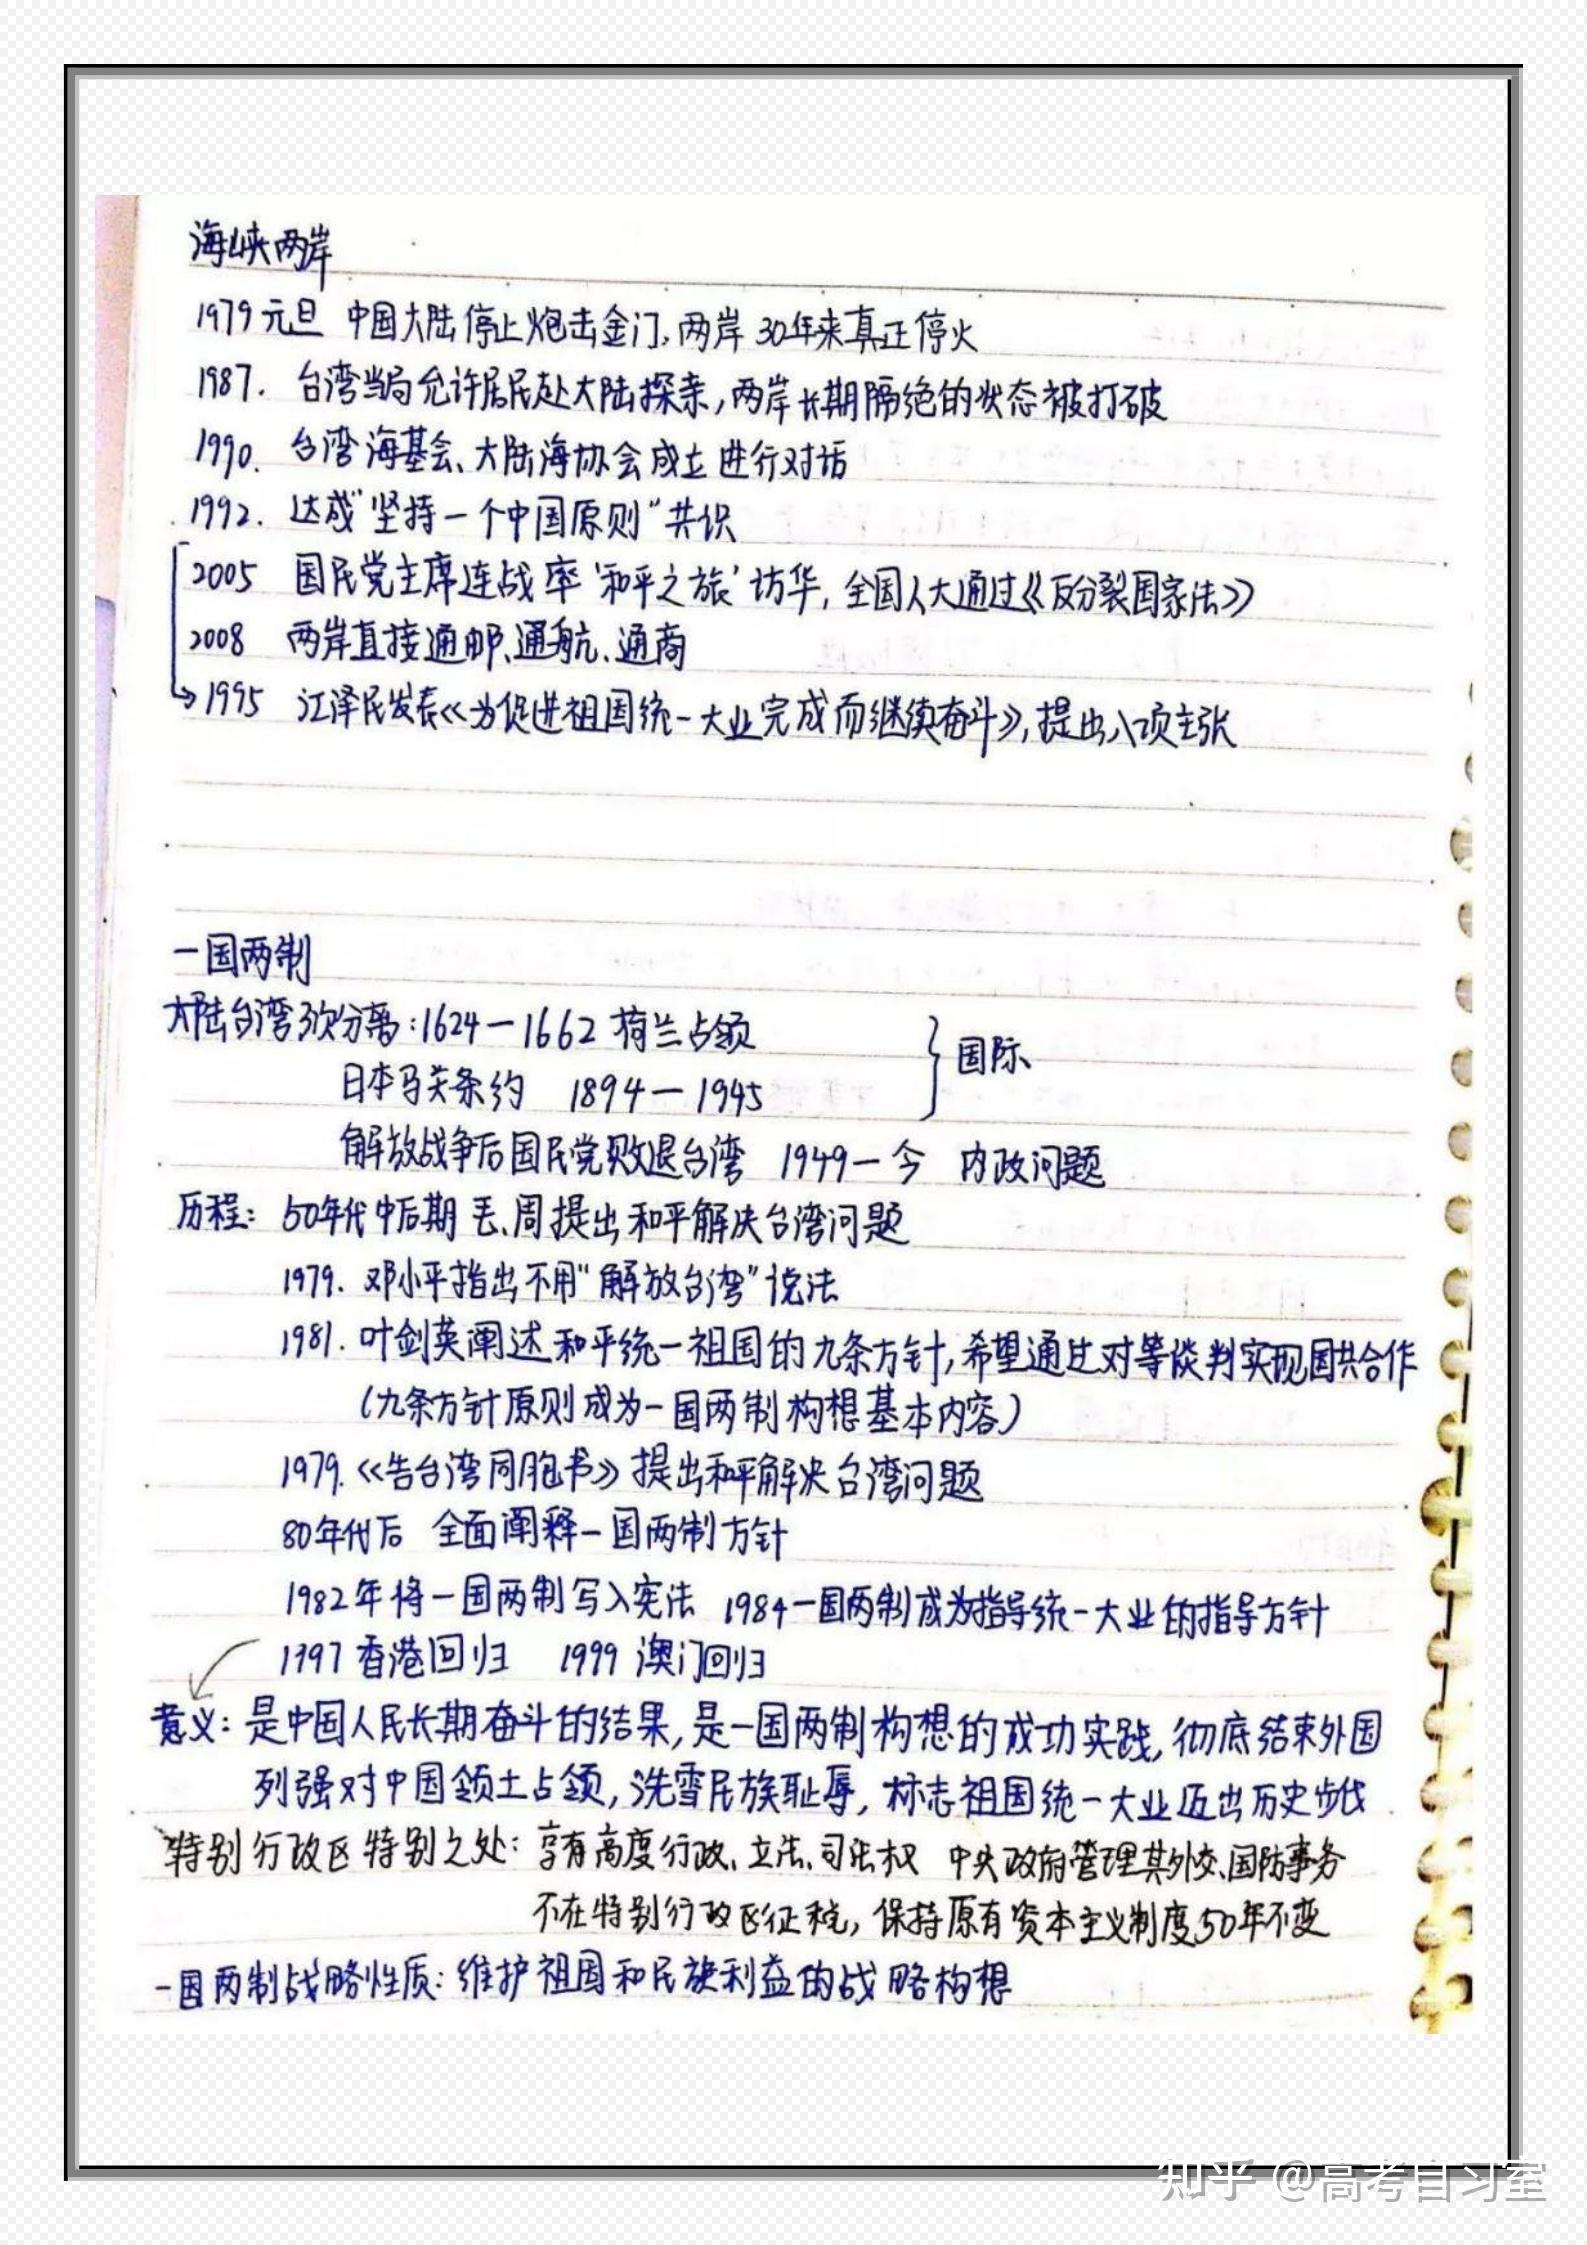 海峡两岸
1979元旦 中国大陆停止炮击金门,两岸30年来真正停火
1987. 台湾当局允许居民赴大陆探亲,两岸长期隔绝的状态被打破
1990. 台湾海基会、大陆海协会成立进行对话
1992. 达成"坚持一个中国原则"共识
2005 国民党主席连战率'和平之旅'访华,全国人大通过《反分裂国家法》
2008 两岸直接通邮、通航、通商
1995 江泽民发表《为促进祖国统一大业完成而继续奋斗》,提出八项主张
一国两制
大陆台湾3次分离:1624—1662 荷兰占领
国际
日本马关条约 1894—1945
解放战争后国民党败退台湾 1949—今 内政问题
历程: 50年代中后期 毛、周提出和平解决台湾问题
1979. 邓小平指出不用"解放台湾"说法
1981. 叶剑英阐述和平统一祖国的九条方针,希望通过对等谈判实现国共合作
(九条方针原则成为一国两制构想基本内容)
1979.《告台湾同胞书》提出和平解决台湾问题
80年代后 全面阐释一国两制方针
1982年将一国两制写入宪法 1984一国两制成为指导统一大业的指导方针
1997香港回归 1999澳门回归
意义: 是中国人民长期奋斗的结果,是一国两制构想的成功实践,彻底结束外国
列强对中国领土占领,洗雪民族耻辱,标志祖国统一大业迈出历史步伐
特别行政区特别之处: 享有高度行政、立法、司法权 中央政府管理其外交、国防事务
不在特别行政区征税,保持原有资本主义制度50年不变
一国两制战略性质: 维护祖国和民族利益的战略构想
知乎 @高考自习室